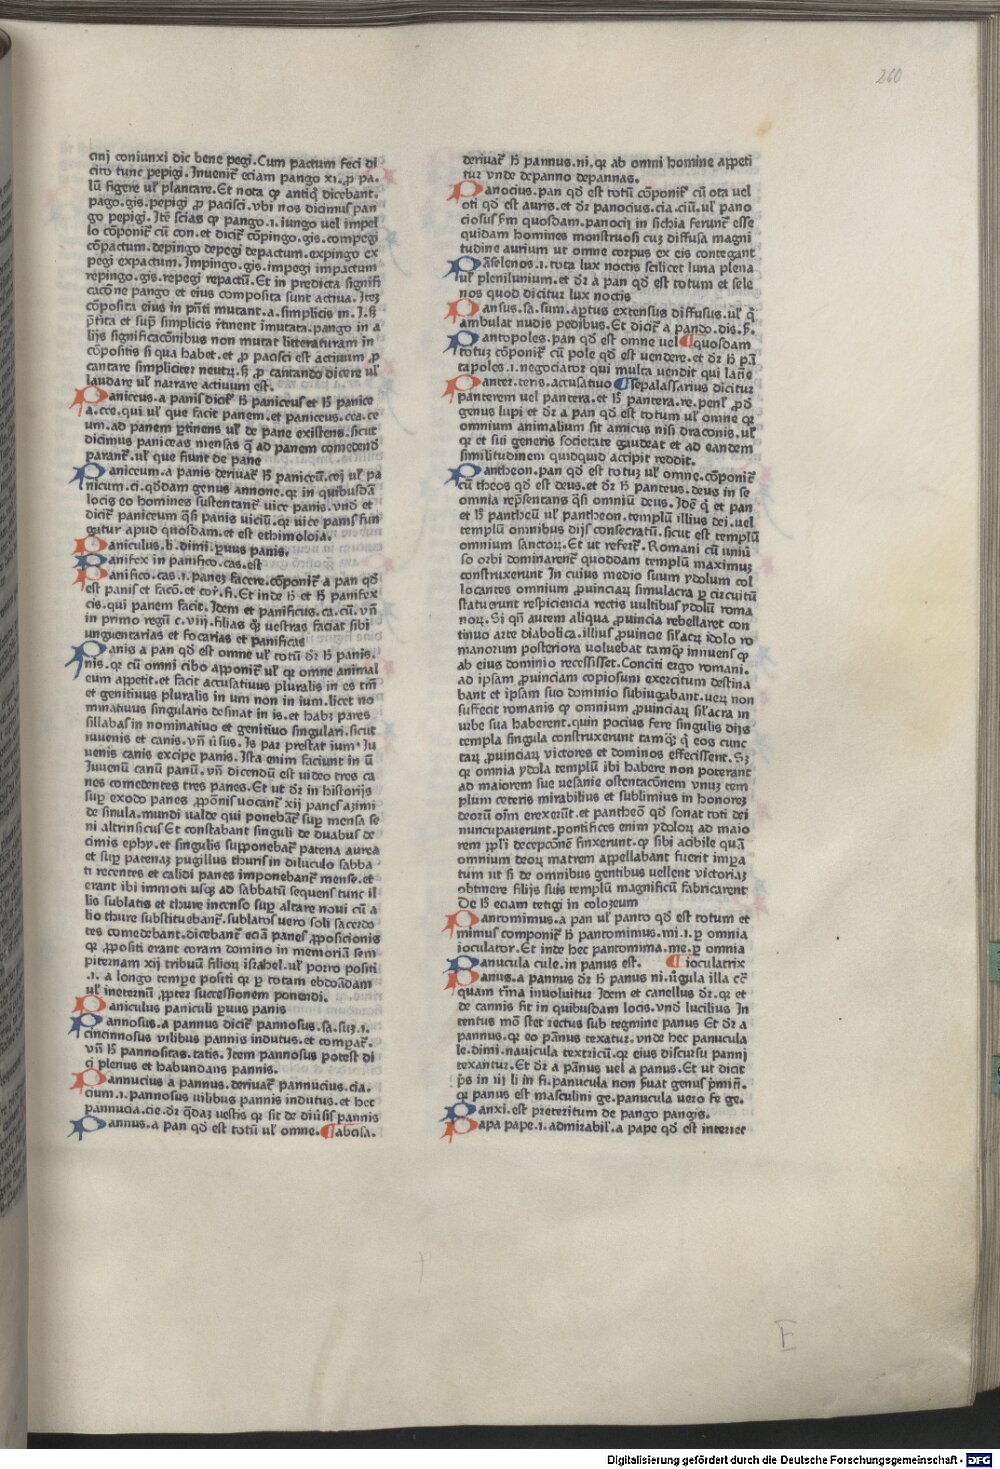 260
cinj coniunxi dic bene pegi.Cum pactum feci di
cito tunc pepigi.Inuenit̄ eciam pango xi.ꝓ pa⸗
lū figere ul̓ plantare.Et nota qꝙ antiq̄ dicebant.
pago.gis.pepigi ꝓ pacisci.vbi nos dicimus pan
go pepigi.Itē scias qꝙ pango.i.iungo uel impel
lo cōponit̄ cū con.et dicit̄ cōpingo.gis.compegi
cōpactum.depingo depegi depactum.expingo ex
pegi expactum.Impingo.gis.impegi impactum
repingo.gis.repegi repactū.Et in predicta signifi
cacōne pango et eius composita sunt actiua.Iteꝫ
cōposita eius in pn̄ti mutant.a.simplicis in.i.sꝫ
p̄tita et sup̄ simplicis r̄tinent īmutata.pango in a
lijs significacōnibus non mutat litteraturam in
cōpositis si qua habet.et ꝓ pacisci est actiuum ꝓ
cantare simpliciter neutꝝ.sꝫ ꝓ cantando dicere ul̓
laudare ul̓ narrare actiuum est.
Paniceus.a panis dicit̄ h̄ paniceus et h̄ panice
a.cee.qui ul̓ que facit panem.et paniceus.cea.ce
um.ad panem ꝑtinens ul̓ de pane existens.sicut
dicimus paniceas mensas q̄ ad panem comedend̄
parant̄.ul̓ que fiunt de pane
Paniceum.a panis deriuat̄ h̄ paniceū.cei ul̓ pa
nicum.ci.qd̄dam genus annone.qꝛ in quibusdā
locis eo homines sustentant̄ vice panis.vnd̄ et
dicit̄ paniceum q̄si panis uiciū.qꝛ uice panis fun
gitur apud quosdam.et est ethimoloia.
Paniculus.li.dimi.ꝑuus panis.
Panifex in panifico.cas.est
Panifico.cas.i.paneꝫ facere.cōponit̄ a pan qd̄
est panis et facō.et cor̄.fi.Et inde h̄ et h̄ panifex
cis.qui panem facit.Idem et panificus.ca.cū.vn̄
in primo regū c.viij.filias qꝫ uestras faciat sibi
unguentarias et focarias et panificas
Panis a pan qd̄ est omne ul̓ totū dr̄ h̄ panis.
nis.qꝛ cū omni cibo apponit̄ ul̓ qꝛ omne animal
eum appetit.et facit accusatiuus pluralis in es tm̄
et genitiuus pluralis in um non in ium.licet no
minatiuus singularis desinat in is.et habꝫ pares
sillabas in nominatiuo et genitiuo singulari.sicut
iuuenis et canis.vn̄ u̓sus.Is par prestat ium·Iu
uenis canis excipe panis.Ista enim faciunt in ū
Iuuenū canū panū.vn̄ dicendū est uideo tres ca
nes comedentes tres panes.Et ut dr̄ in historijs
sup̄ exodo panes ꝓpōnis uocant̄ xij panes azimi
de simila.mundi ualde qui ponebāt̄ sup̄ mensa se
ni altrinsicus Et constabant singuli de duabus de
cimis ephy.et singulis supponebat̄ patena aurea
et sup̄ patenaꝫ pugillus thuris in diluculo sabba
ti recentes et calidi panes imponebant̄ mense.et
erant ibi immoti usqꝫ ad sabbatū sequens tunc il
lis sublatis et thure incenso sup̄ altare noui cū a
lio thure substituebant̄.sublatos uero soli sacerdo
tes comedebant.dicebant̄ eciā panes ꝓposicionis
qꝛ ꝓpositi erant coram domino in memoriā sem
piternam xij tribuū filioꝝ israhel.ul̓ porro positi
.i.a longo tempe positi qꝛ ꝑ totam ebdoādam
ul̓ ineternū ꝓpter successionem ponendi.
Paniculus paniculi ꝑuus panis
Pannosus.a pannus dicit̄ pannosus.sa.suꝫ.i.
cincinnosus vilibus pannis indutus.et compat̄.
vn̄ h̄ pannositas.tatis.Item pannosus potest di
ci plenus et habundans pannis.
Pannucius a pannus.deriuat̄ pannucius.cia.
cium.i.pannosus uilibus pannis indutus.et hec
pannucia.cie.dr̄ q̄daꝫ uestis qꝛ sit de diu̓sis pannis
Pannus.a pan qd̄ est totū ul̓ omne. ¶abcisa.
deriuat̄ h̄ pannus.ni.qꝛ ab omni homine appeti
tur vnde depanno depannas.
Panocius.pan qd̄ est totū cōponit̄ cū ota uel
oti qd̄ est auris.et dr̄ panocius.cia.ciū.ul̓ pano
ciosus sm̄ quosdam.panocij in sichia ferunt̄ esse
quidam homines monstruosi cuꝫ diffusa magni
tudine aurium ut omne corpus ex eis contegant
Pāselenos.i.tota lux noctis scilicet luna plena
ul̓ plenilunium.et dr̄ a pan qd̄ est totum et sele
nos quod dicitur lux noctis
Pansus.sa.sum.aptus extensus diffusus.ul̓ q̄
ambulat nudis pedibus.Et dicit̄ a pando.dis.
Pantopoles.pan qd̄ est omne uel ¶quosdam
totuꝫ cōponit̄ cū pole qd̄ est vendere.et dr̄ h̄ pā
tapoles.i.negociator qui multa uendit qui lan̄e
Panter.teris.accusatiuo ¶sepalassarius dicitur
panterem uel pantera.et h̄ pantera.re.penl̓ ꝓd̄
genus lupi et dr̄ a pan qd̄ est totum ul̓ omne qꝛ
omnium animalium sit amicus nisi draconis.ul̓
qꝛ et sui generis societate gaudeat et ad eandem
similitudinem quidquid accipit reddit.
Pantheon.pan qd̄ est totuꝫ ul̓ omne.cōponit̄
cū theos qd̄ est deus.et dr̄ h̄ panteus.deus in se
omnia rep̄sentans q̄si omniū deus.Idē q̄ et pan
et h̄ pantheū ul̓ pantheon.templū illius dei.uel
templū omnibus dijs consecratū.sicut est templū
omnium sanctoꝝ.Et ut refert̄.Romani cū uniu̓
so orbi dominarent̄ quoddam templū maximuꝫ
construxerunt In cuius medio suum ydolum col
locantes omnium ꝓuinciaꝝ simulacra ꝑ circuitū
statuerunt respiciencia rectis uultibus ydolū roma
noꝝ.Si qn̄ autem aliqua ꝓuincia rebellaret con
tinuo arte diabolica.illius ꝓuincie sil̓acꝝ idolo ro
manorum posteriora voluebat tamqꝫ innuens qꝙ
ab eius dominio recessisset.Conciti ergo romani.
ad ipsam ꝓuinciam copiosum exercitum destina
bant et ipsam suo dominio subiugabant.ueꝝ non
suffecit romanis qꝙ omnium ꝓuinciaꝝ sil̓acra in
urbe sua haberent.quin pocius fere singulis dijs
templa singula construxerunt tamqꝫ q̄ eos cunc
taꝝ ꝓuinciaꝝ victores et dominos effecissent.Sꝫ
qꝛ omnia ydola templū ibi habere non poterant
ad maiorem sue uesanie ostentacōnem vnuꝫ tem
plum ceteris mirabilius et sublimius in honoreꝫ
deoꝝ oīm erexerūt.et pantheō qd̄ sonat toti dei
nuncupauerunt.pontifices enim ydoloꝝ ad maio
rem ppl̓i decepcōnem finxerunt.qꝙ sibi acibile quā
omnium deoꝝ matrem appellabant fuerit impa
tum ut si de omnibus gentibus uellent victoriaꝫ
obtinere filijs suis templū magnificū fabricarent
De h̄ eciam tetigi in colozeum
Pantomimus.a pan ul̓ panto qd̄ est totum et
mimus componit̄ h̄ pantomimus.mi.i.ꝑ omnia
ioculator.Et inde hec pantomima.me.ꝑ omnia
Panucula cule.in panus est. ¶ioculatrix
Panus.a pannus dr̄ h̄ panus ni.u̓gula illa cc̄
quam tm̄a inuoluitur Idem et canellus dr̄.qꝛ et
de cannis fit in quibusdam locis.vnd̄ lucilius In
tentus mō stet rectus sub tegmine panus Et dr̄ a
pannus.qꝛ eo pānus texatur.vnde hec panucula
le.dimi.nauicula textricū.qꝛ eius discursu panni
texantur.Et dr̄ a pānus uel a panus.Et ut dicit
p̄s in iij li in fi.panucula non s̓uat genus p̄mi̓n̄.
qꝛ panus est masculini ge.panucula uero fe ge.
Panxi.est preteritum de pango pangis.
Papa pape.i.admirabil̓.a pape qd̄ est interiec
E
Digitalisierung gefördert durch die Deutsche Forschungsgemeinschaft - DFG